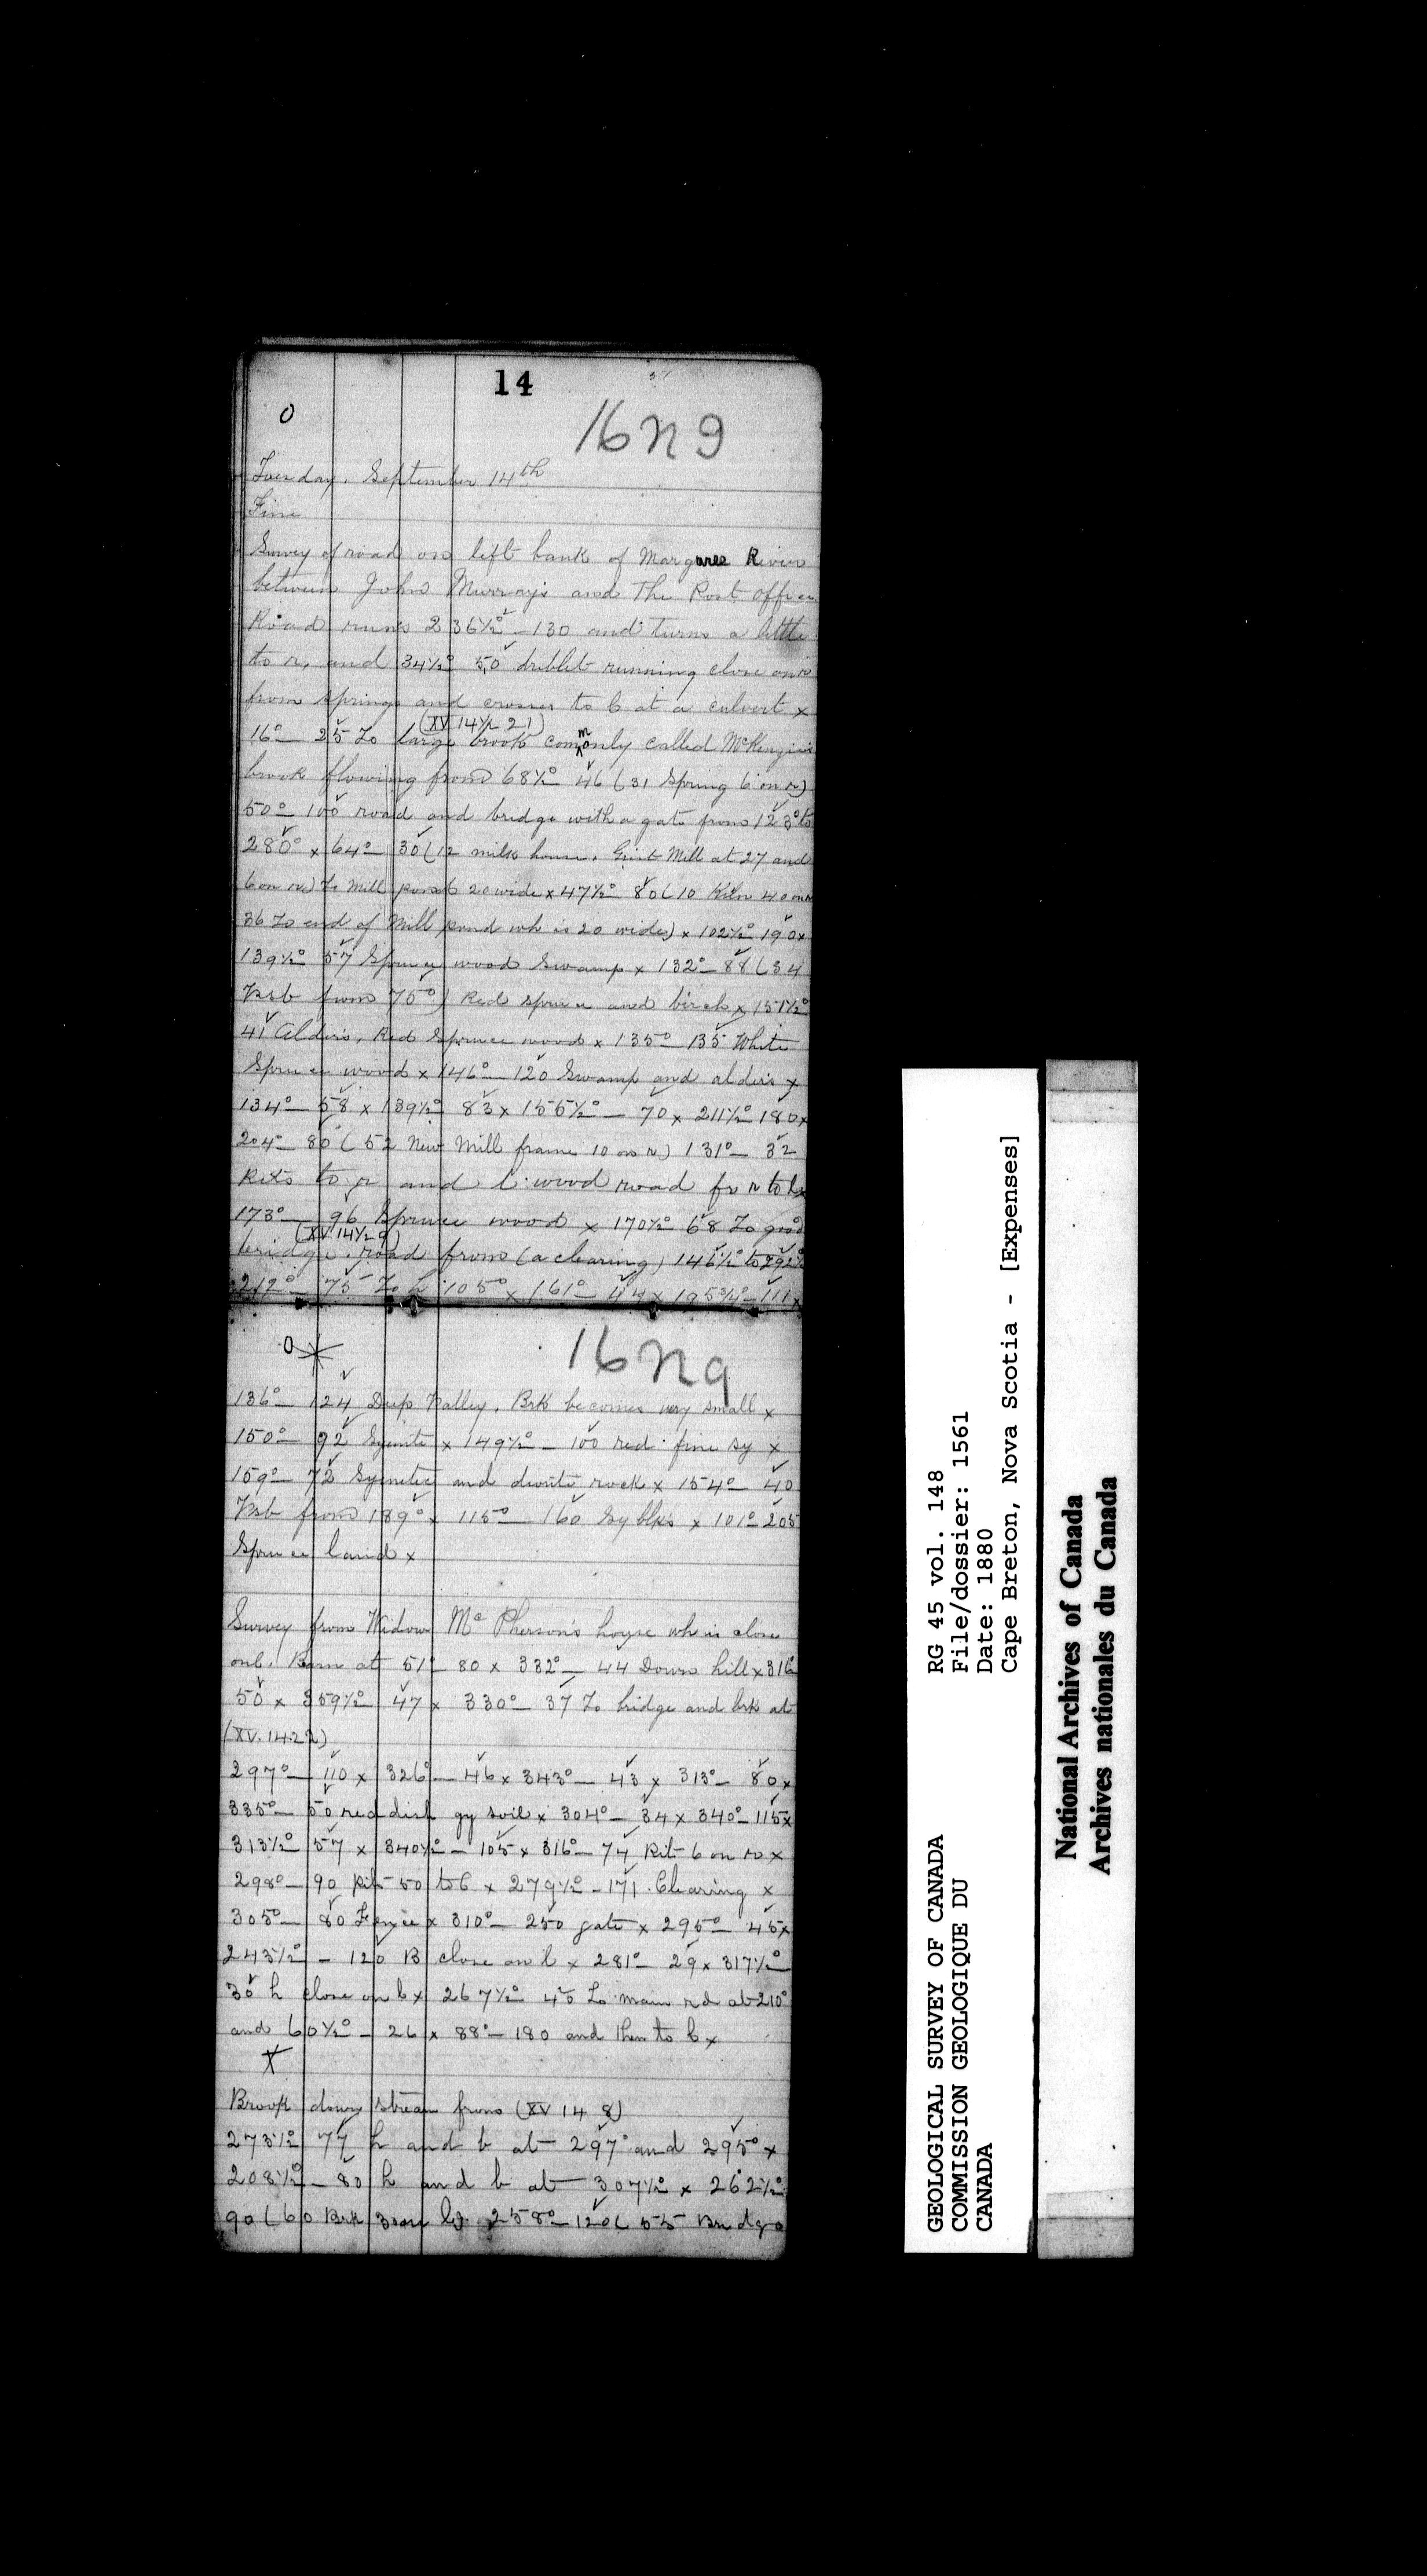 14
0
16 n 9
Tuesday. September 14th
Fine
Survey of road on left bank of Margaree River
between John Murray's and The Post Office
Road runs 236½° – 130 and turns a little
to r. and 34½° 50 driblet running close on r
from springs and crosses to l at a culvert x
(XV 14½ 21)
16° – 25 To large brook commonly called McKenzie's
brook flowing from 68½° 46 (31 Spring 6 on r)
50° – 100 road and bridge with a gate from 123° to
280° x 64° – 30 (12 milk house. Grist Mill at 27 and
6 on r) To Mill pond 20 wide x 47½° 80 (10 Kiln 40 on r
36 To end of Mill pond wh is 20 wide) x 102½° 190 x
139½° 57 Spruce wood Swamp x 132° – 88 (34
Bsb from 75°) Red spruce and birch x 151½°
41 Alders, Red Spruce wood x 135° – 135 White
Spruce wood x 146° – 120 Swamp and alders x
134° – 58 x 139½° 83 x 155½° – 70 x 211½° 180 x
204° – 80 (52 New Mill frame 10 on r) 131° – 32
Pits to r and l. wood road fr r to l x
173° – 96 Spruce wood x 170½° 68 To good
(XV 14½ 9)
bridge. road from (a clearing) 146½° to 292½°
212° – 75 To 105° x 161° – 44 x 195¾° – 111 x
0
16 n 9
136° – 124 Deep Valley. Brk becomes very small x
150° – 92 Syenite x 149½° – 100 red fine sy x
159° – 72 Syenitic and diorite rock x 154° – 40
Bsb from 189° x 115° – 160 Sy blks x 101° – 205
Spruce land x
Survey from Widow McPherson's house wh is close
on l. Barn at 51° – 80 x 332° – 44 Down hill x 316°
50 x 359½° 47 x 330° – 37 To bridge and brk at
(XV. 14.22)
297° – 110 x 326° – 46 x 343° – 43 x 313° – 80 x
335° – 50 reddish gy soil x 304° – 34 x 340° – 115 x
313½° 57 x 340½° – 105 x 316° – 74 Pit 6 on r x
298° – 90 Pit 50 to l x 279½° – 171 Clearing x
305° – 80 Fence x 310° – 250 gate x 295° – 45 x
243½° – 120 B close on l x 281° – 29 x 317½°
30 h close on l x 267½° 40 To main rd at 210°
and 60½° – 26 x 88° – 180 and then to l x
X
Brook down stream from (XV 14 8)
273½° 77 h and b at 297° and 295° x
208½° – 80 h and b at 307½° x 262½°
90 (60 Brk 3 on l) 258° – 120 (55 Bridge
GEOLOGICAL SURVEY OF CANADA
COMMISSION GEOLOGIQUE DU
CANADA
RG 45 vol. 148
File/dossier: 1561
Date: 1880
Cape Breton, Nova Scotia - [Expenses]
National Archives of Canada
Archives nationales du Canada